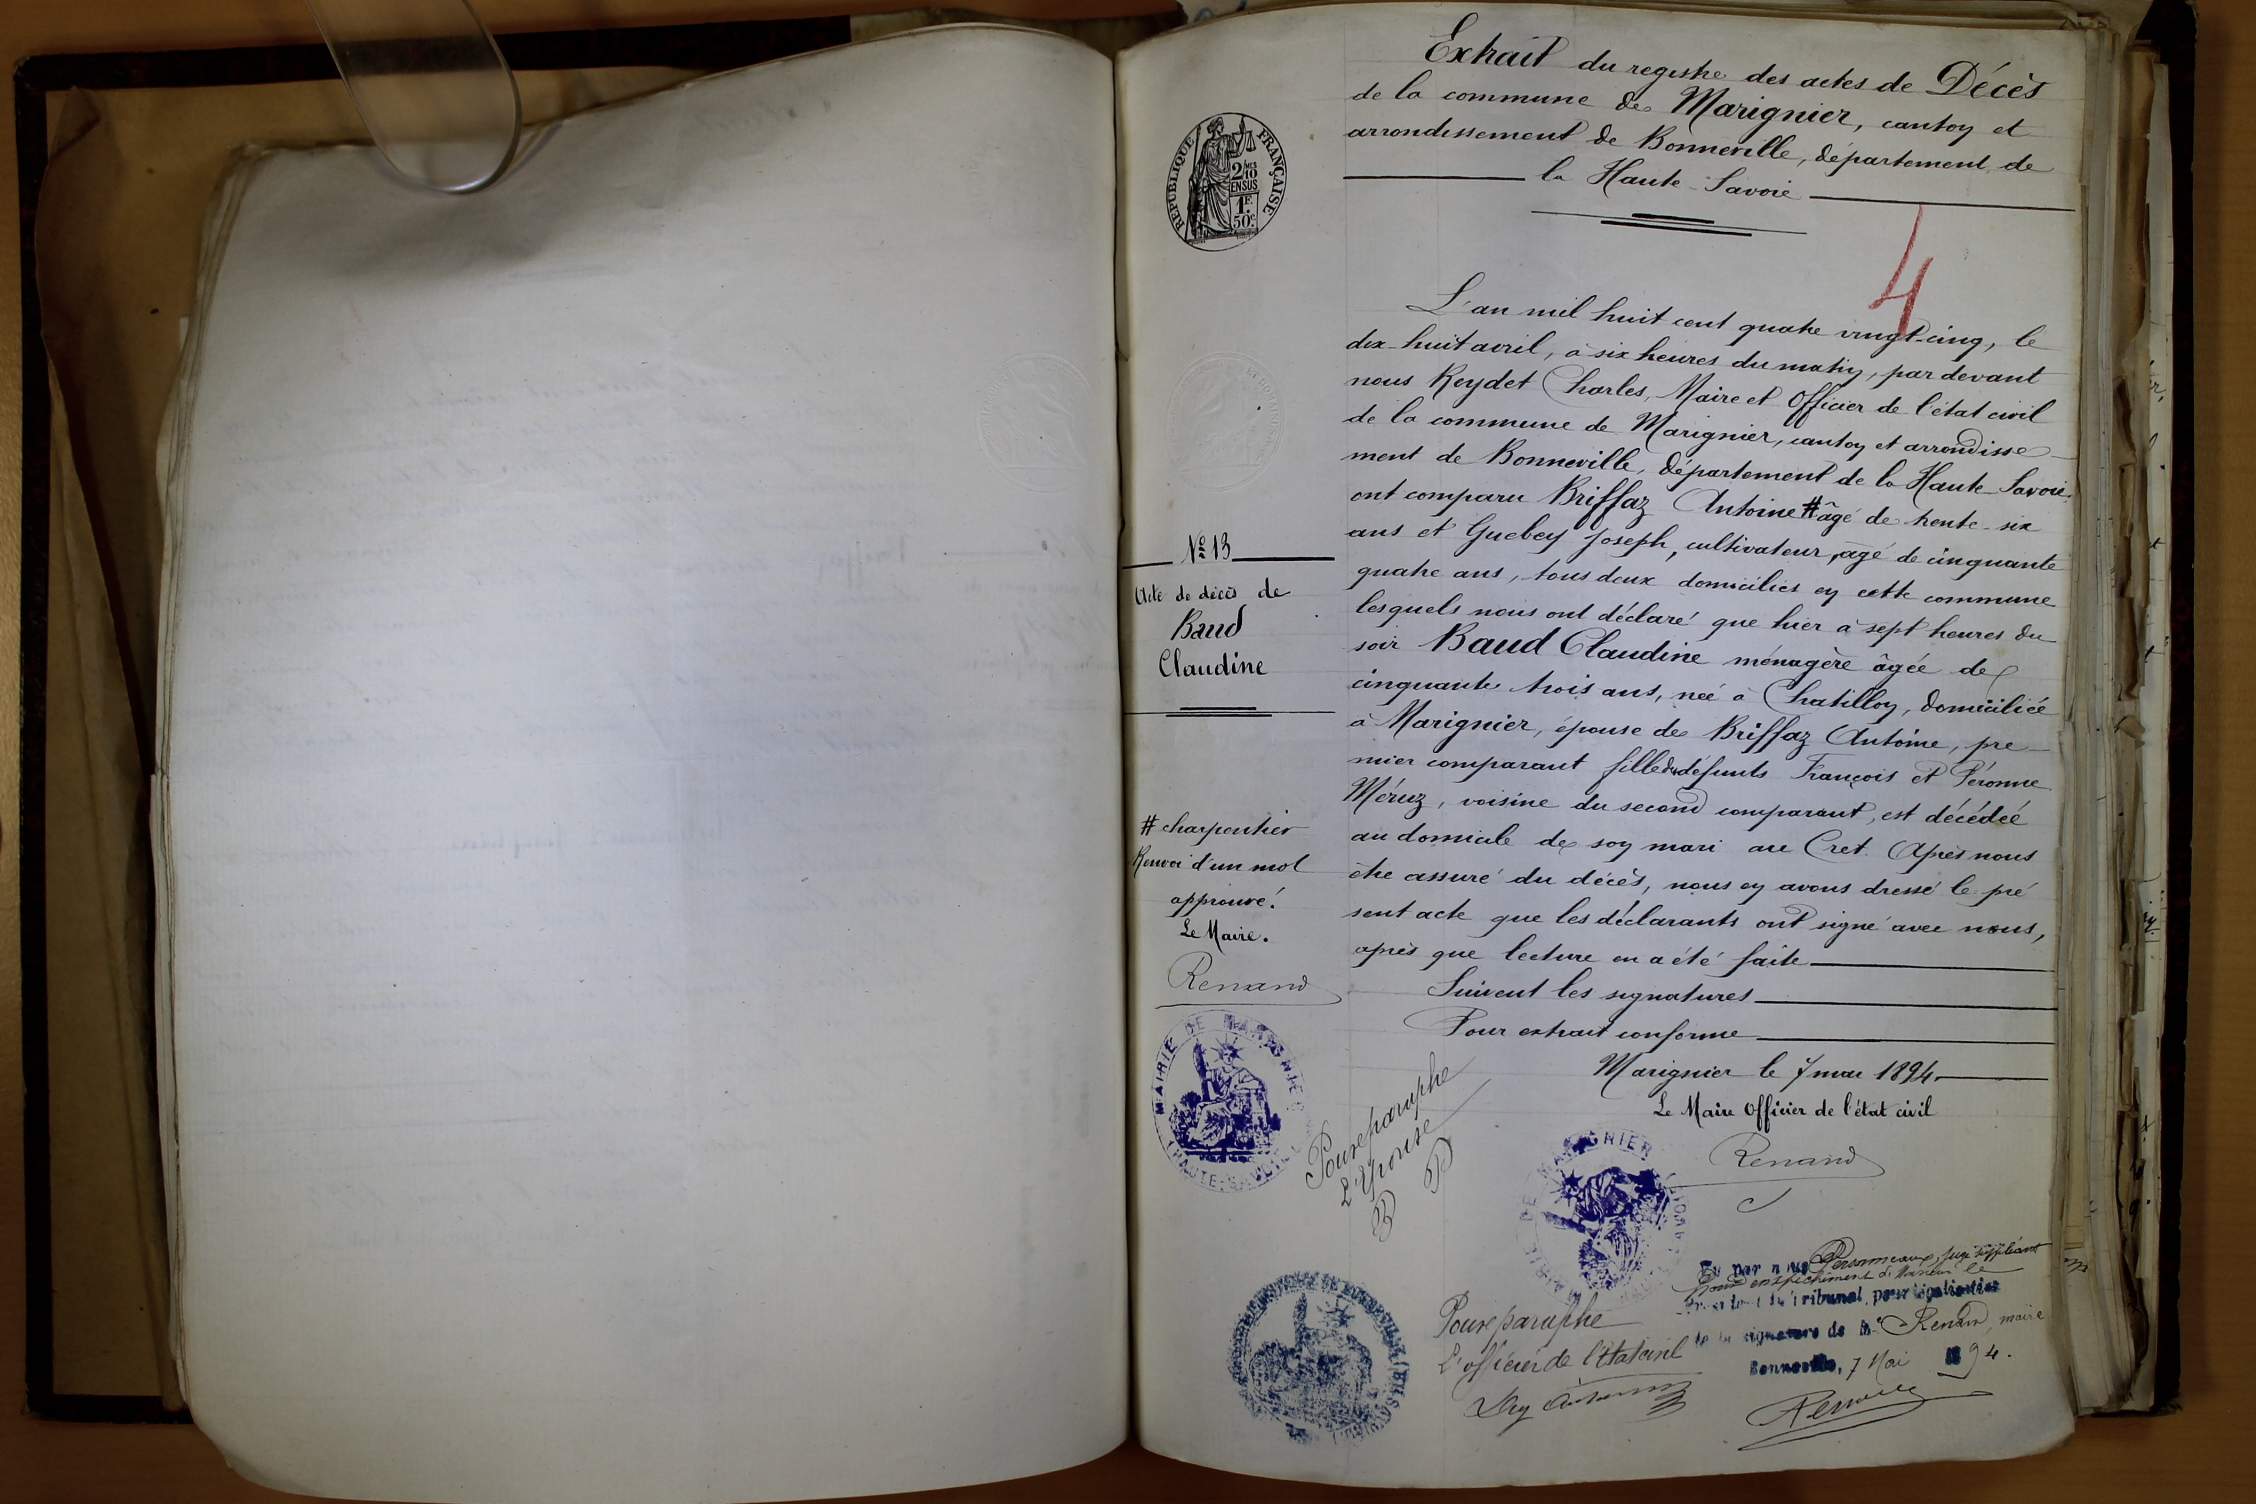 Extrait du registre des actes de Décès
de la commune de Marignier, canton et
arrondissement de Bonneville, département de
la Haute-Savoie
RÉPUBLIQUE FRANÇAISE
2/10
EN SUS
1F
50c
4
L'an mil huit cent quatre vingt-cinq, le
dix-huit avril, à six heures du matin, par devant
nous Reydet Charles, Maire et Officier de l'état civil
de la commune de Marignier, canton et arrondisse-
ment de Bonneville, département de la Haute-Savoie,
ont comparu Briffaz Antoine # âgé de trente-six
ans et Guebey Joseph, cultivateur, âgé de cinquante
quatre ans, tous deux domiciliés en cette commune
lesquels nous ont déclaré que hier à sept heures du
soir Baud Claudine ménagère âgée de
cinquante trois ans, née à Chatillon, domiciliée
à Marignier, épouse de Briffaz Antoine, pre-
mier comparant fille de défunts François et Péronne
Méruz, voisine du second comparant, est décédée
au domicile de son mari au Cret. Après nous
être assuré du décès, nous en avons dressé le pré
sent acte que les déclarants ont signé avec nous,
après que lecture en a été faite
Suivent les signatures
Pour extrait conforme
Marignier le 7 mai 1894.
Le Maire Officier de l'état civil
Renand
N° 13
Acte de décès de
Baud
Claudine
# charpentier
Renvoi d'un mot
approuvé.
Le Maire.
Renand
MAIRIE DE MARIGNIER
(HAUTE-SAVOIE)
Pour paraphe
MAIRIE DE MARIGNIER
Vu par nous Personneaux, juge suppléant
pour empêchement de Monsieur le
Président du Tribunal, pour légalisation
de la signature de Mr Renand, maire
Bonneville, 7 Mai 1894.
Pour paraphe
L'officier de l'Etat civil